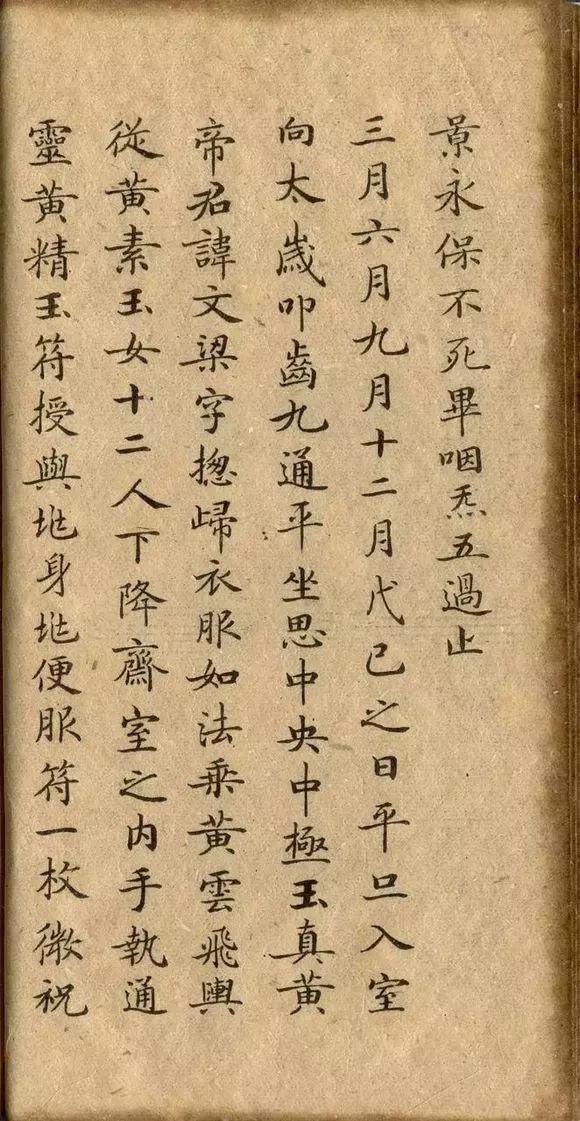 景永保不死畢咽炁五過止
三月六月九月十二月戊己之日平旦入室
向太歲叩齒九通平坐思中央中極玉真黃
帝君諱文梁字揔歸衣服如法乘黃雲飛輿
從黃素玉女十二人下降齋室之内手執通
靈黃精玉符授與兆身兆便服符一枚微祝